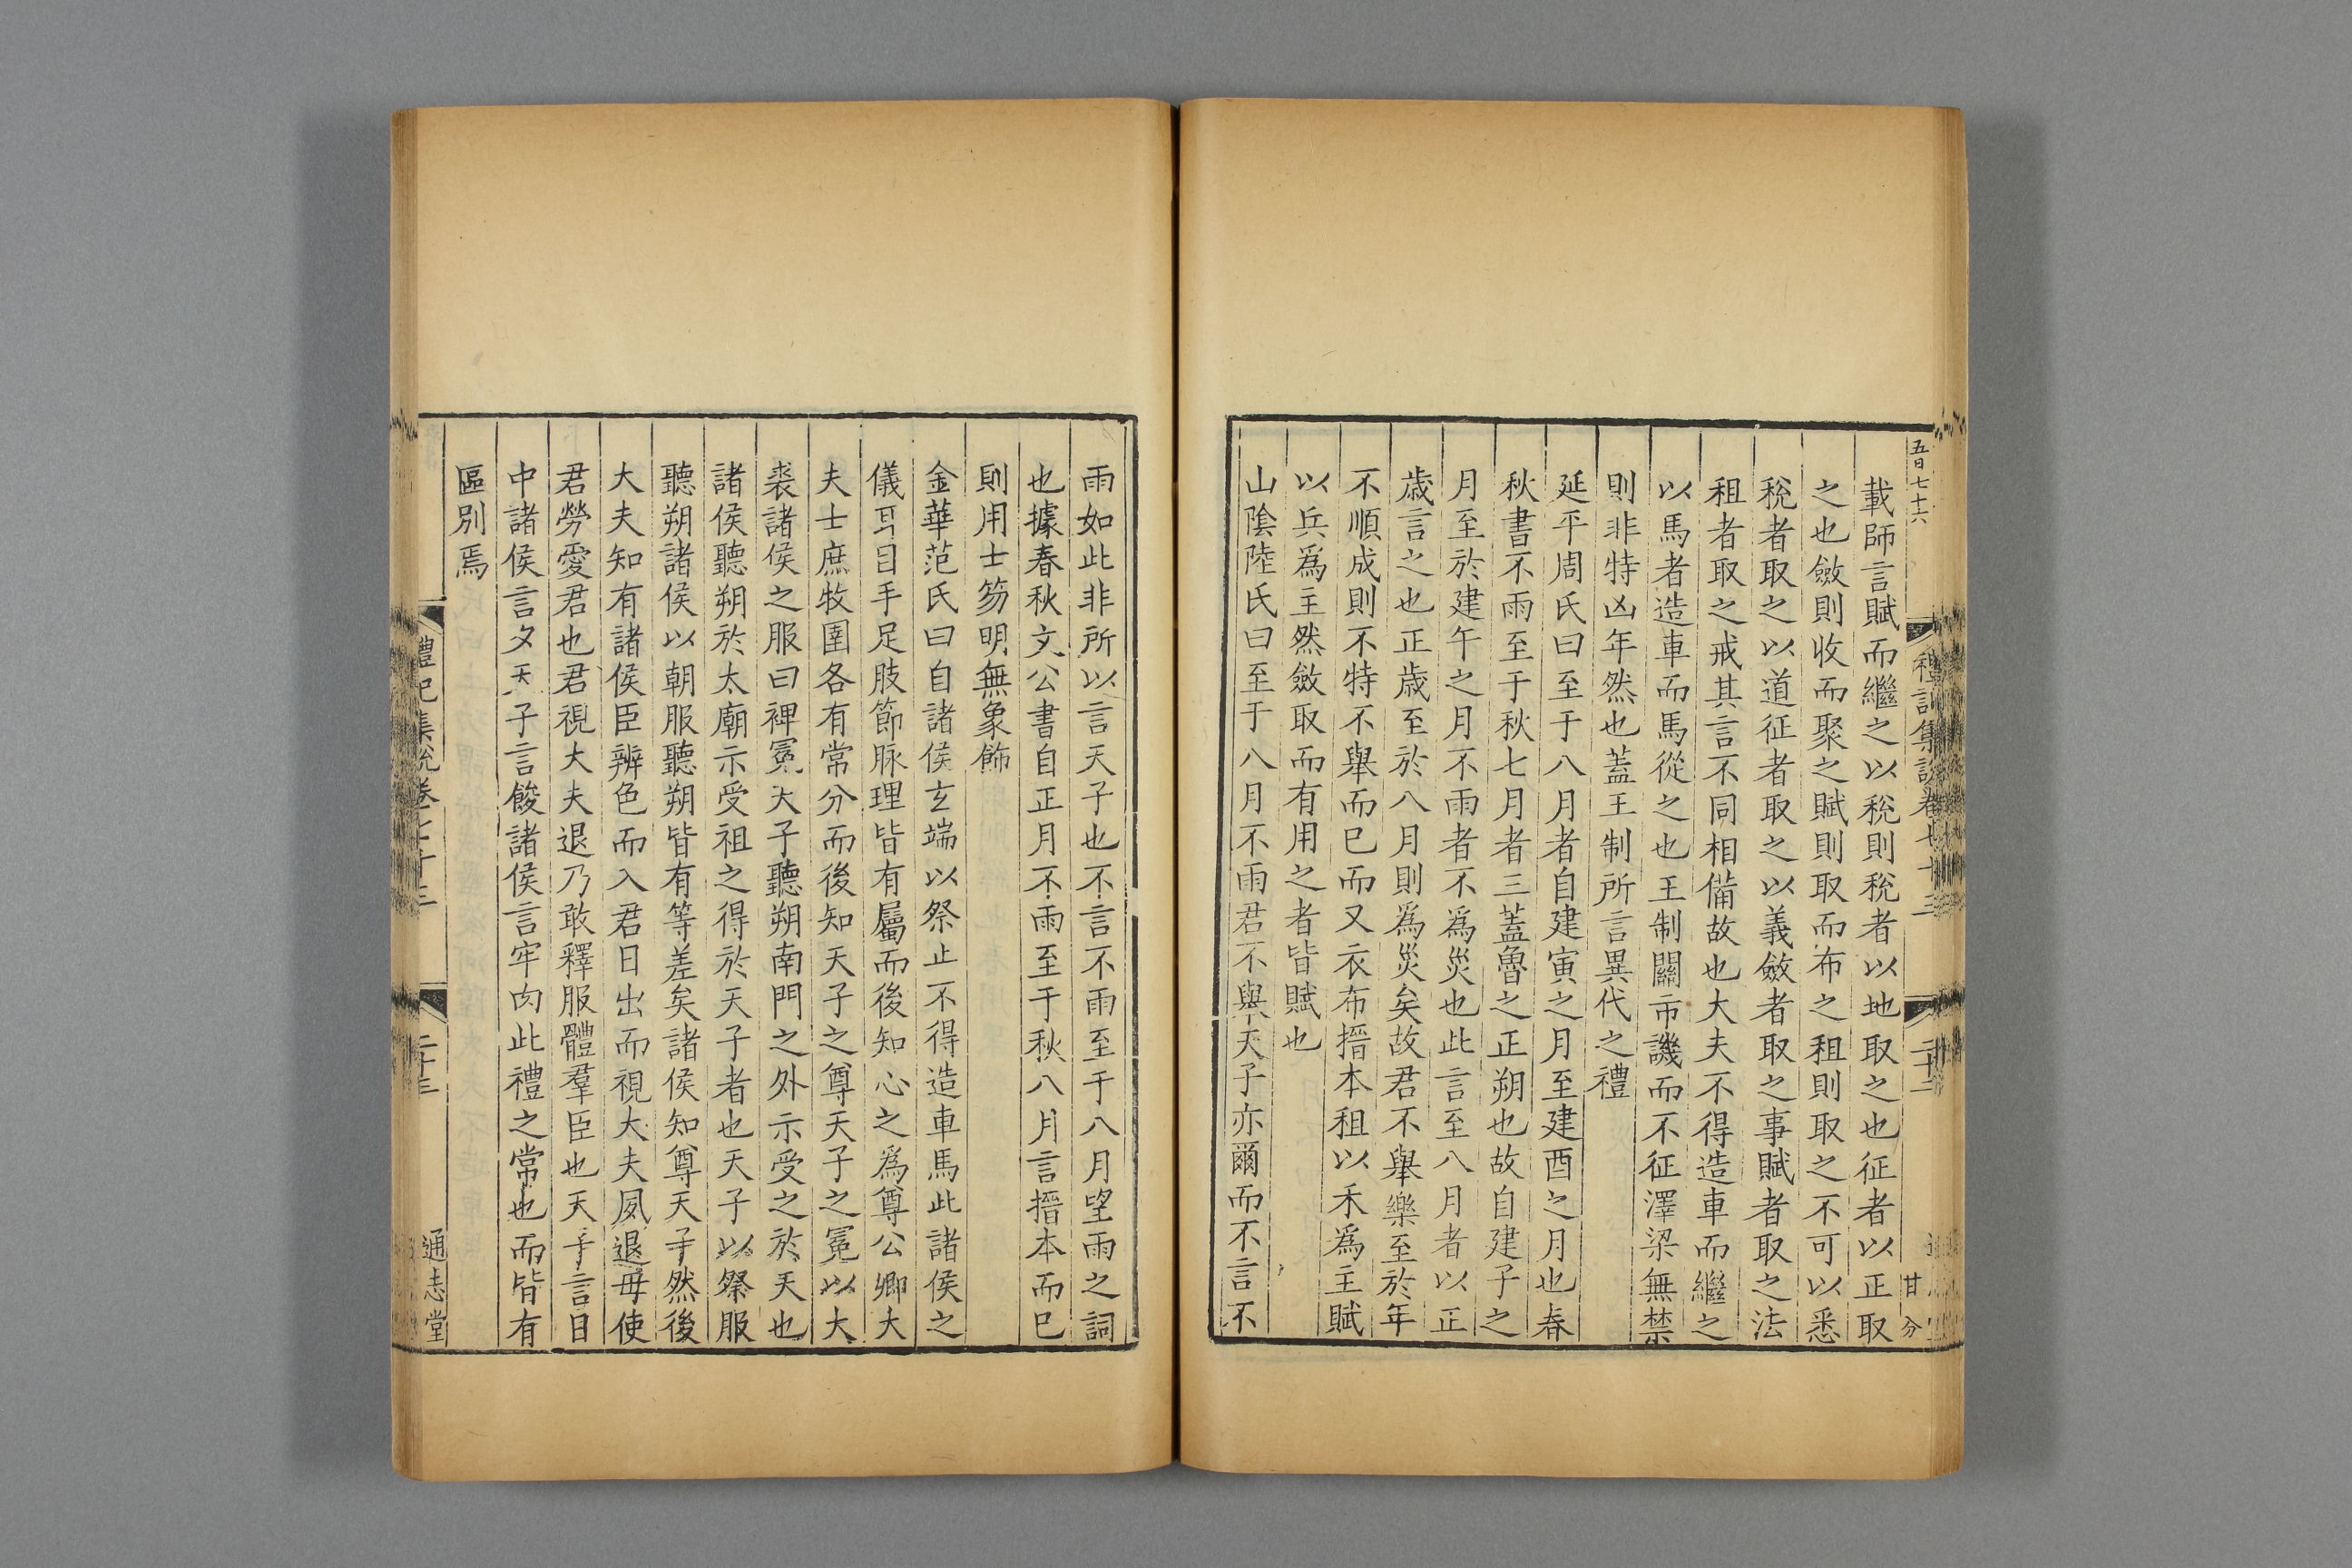 五百七十六
禮記集說卷七十三
二十二
甘分
載師言賦而繼之以稅則稅者以地取之也征者以正取
之也斂則收而聚之賦則取而布之租則取之不可以悉
稅者取之以道征者取之以義斂者取之事賦者取之法
租者取之戒其言不同相備故也大夫不得造車而繼之
以馬者造車而馬從之也王制關市譏而不征澤梁無禁
則非特凶年然也蓋王制所言異代之禮
延平周氏曰至于八月者自建寅之月至建酉之月也春
秋書不雨至于秋七月者三蓋魯之正朔也故自建子之
月至於建午之月不雨者不為災也此言至八月者以正
歲言之也正歲至於八月則為災矣故君不舉樂至於年
不順成則不特不舉而已而又衣布搢本租以禾為主賦
以兵為主然斂取而有用之者皆賦也
山陰陸氏曰至于八月不雨君不與天子亦爾而不言不
雨如此非所以言天子也不言不雨至于八月望雨之詞
也據春秋文公書自正月不雨至于秋八月言搢本而已
則用士笏明無象飾
金華范氏曰自諸侯玄端以祭止不得造車馬此諸侯之
儀耳目手足肢節脉理皆有屬而後知心之為尊公卿大
夫士庶牧圉各有常分而後知天子之尊天子之冕以大
裘諸侯之服曰裨冕天子聽朔南門之外示受之於天也
諸侯聽朔於太廟示受祖之得於天子者也天子以祭服
聽朔諸侯以朝服聽朔皆有等差矣諸侯知尊天子然後
大夫知有諸侯臣辨色而入君日出而視大夫夙退毋使
君勞愛君也君視大夫退乃敢釋服體羣臣也天子言日
中諸侯言夕天子言餕諸侯言牢肉此禮之常也而皆有
區別焉
禮記集說卷七十三
二十三
通志堂